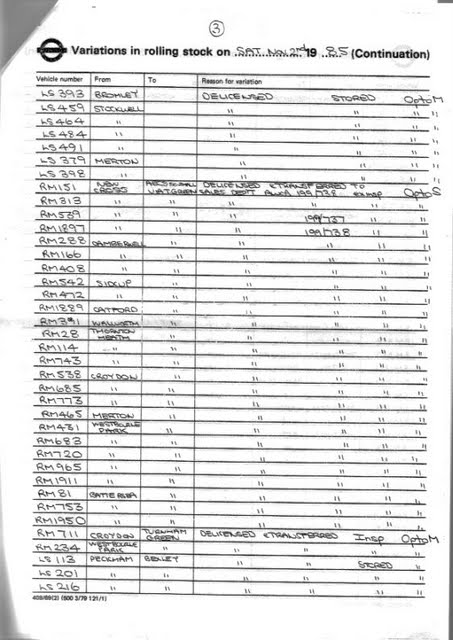 3
Variations in rolling stock on SAT. Nov. 2nd 19 85 (Continuation)
Vehicle number From To Reason for variation
LS 393 BROMLEY DELICENSED STORED OptoM
LS 459 STOCKWELL " " "
LS 464 " " " "
LS 484 " " " "
LS 491 " " " "
LS 379 MERTON " " "
LS 398 " " " "
RM151 NEW CROSS DELICENSED & TRANSFERRED TO SALES DEPT 199/738 OptoS
RM313 " " " " "
RM539 " " " 199/737 " "
RM1897 " " " 199/738 " "
RM288 CAMBERWELL " " " "
RM166 " " " " " "
RM408 " " " " "
RM542 SIDCUP " " " "
RM472 " " " " "
RM1889 CATFORD " " " "
RM391 WALWORTH " " " "
RM28 THORNTON HEATH " " " "
RM114 " " " " "
RM743 " " " " "
RM538 CROYDON " " " "
RM685 " " " " "
RM773 " " " " "
RM465 MERTON " " " "
RM431 WESTBOURNE PARK " " " "
RM683 " " " " "
RM720 " " " " "
RM965 " " " " "
RM1911 " " " " "
RM81 BATTERSEA " " " "
RM753 " " " " "
RM1950 " " " " "
RM711 CROYDON TURNHAM GREEN DELICENSED & TRANSFERRED Insp OptoM
RM234 WESTBOURNE PARK " " " " "
LS 113 PECKHAM BEXLEY " " STORED "
LS 201 " " " " " "
LS 216 " " " " " "
409/69(2) (500 3/79 121/1)